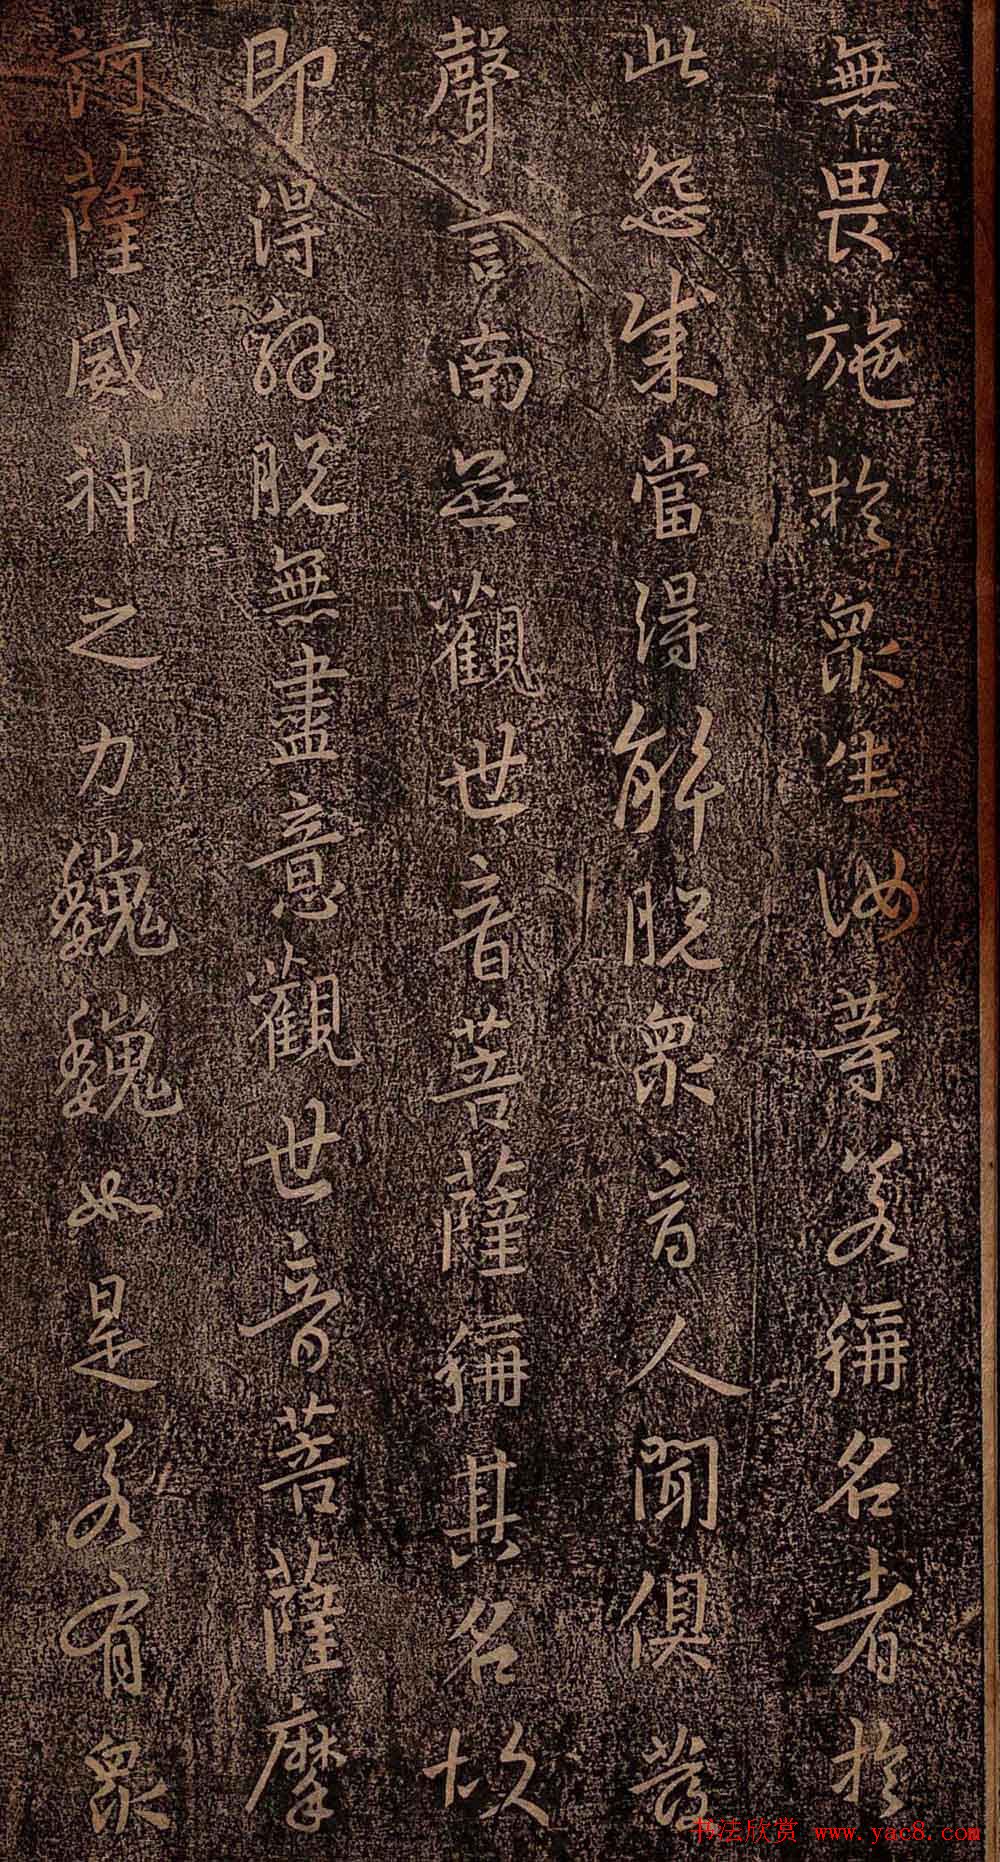 無畏施於眾生汝等若稱名者於
此怨賊當得解脫眾商人聞俱發
聲言南無觀世音菩薩稱其名故
即得解脫無盡意觀世音菩薩摩
訶薩威神之力巍巍如是若有眾
书法欣赏 www.yac8.com